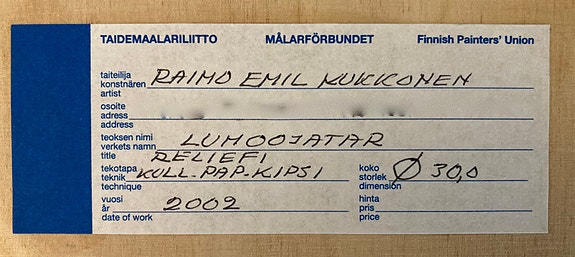 TAIDEMAALARILIITTO MÅLARFÖRBUNDET Finnish Painters' Union
taiteilija
konstnären RAIMO EMIL KUKKONEN
artist
osoite
adress
address
teoksen nimi
verkets namn LUMOOJATAR
title RELIEFI
tekotapa
teknik KULL-PAP-KIPSI
technique
koko
storlek Ø 30,0
dimension
vuosi
år 2002
date of work
hinta
pris
price